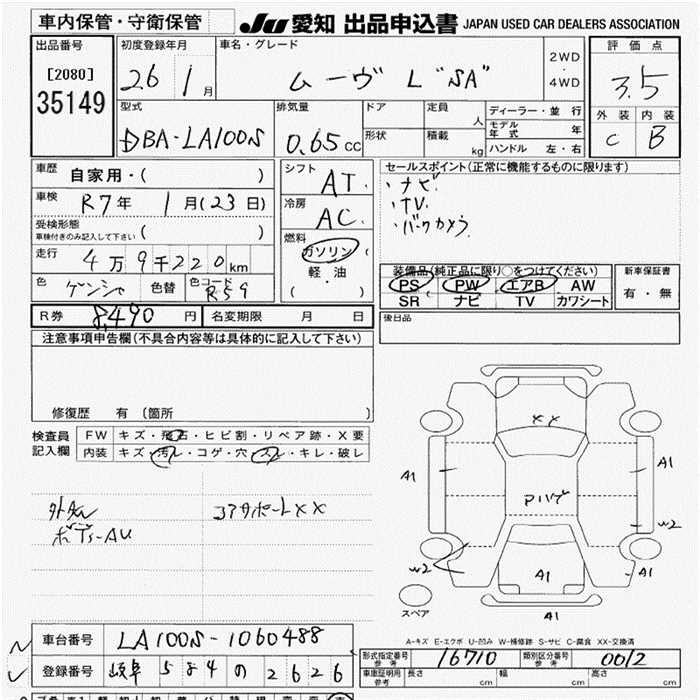 車内保管・守衛保管
JU 愛知 出品申込書 JAPAN USED CAR DEALERS ASSOCIATION
出品番号
[2080]
35149
初度登録年月
26 1月
車名・グレード
ムーヴ L "SA"
2WD
4WD
評価点
3.5
外装 内装
C B
型式
DBA-LA100S
排気量
0.65 CC
ドア
定員
人
形状
積載
kg
ディーラー・並行
モデル年式 年
ハンドル 左・右
車歴 自家用・( )
車検 R7年 1月(23日)
受検形態
車検付きのみ記入して下さい ( )
走行 4万9千220km
色
色替
色コード R59
シフト AT
冷房 AC
燃料
ガソリン
軽油
( )
セールスポイント(正常に機能するものに限ります)
・ナビ
・TV
・バックカメラ
装備品(純正品に限り○をつけてください)
PS PW エアB AW
SR ナビ TV カワシート
新車保証書
有・無
後日品
R券 8,490円
名変期限 月 日
注意事項申告欄(不具合内容等は具体的に記入して下さい)
修復歴 有(箇所 )
検査員記入欄
FW キズ・飛石・ヒビ割・リペア跡・X要
内装 キズ・汚レ・コゲ・穴・スレ・キレ・破レ
コアサポートXX
ボディーAU
XX
A1
A1
W2
W2
A1
A1
A1
スペア
A-キズ E-エクボ U-凹み W-補修跡 S-サビ C-腐食 XX-交換済
車台番号 LA100S-1060488
登録番号 岐阜 584 の 2626
形式指定番号 参考 16710
類別区分番号 参考 0012
車庫証明用 参考
長さ cm
幅 cm
高さ cm